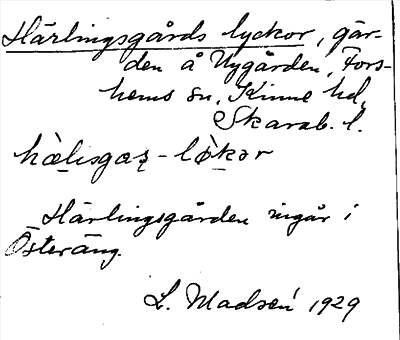 Härlingsgårds lyckor, går-
den å Nygården, Fors-
hems sn, Kinne hd,
Skarab. l.
hæ̀lisgaʂ - lø̀kər
Härlingsgården ingår i
Österäng.
L. Madsén 1929